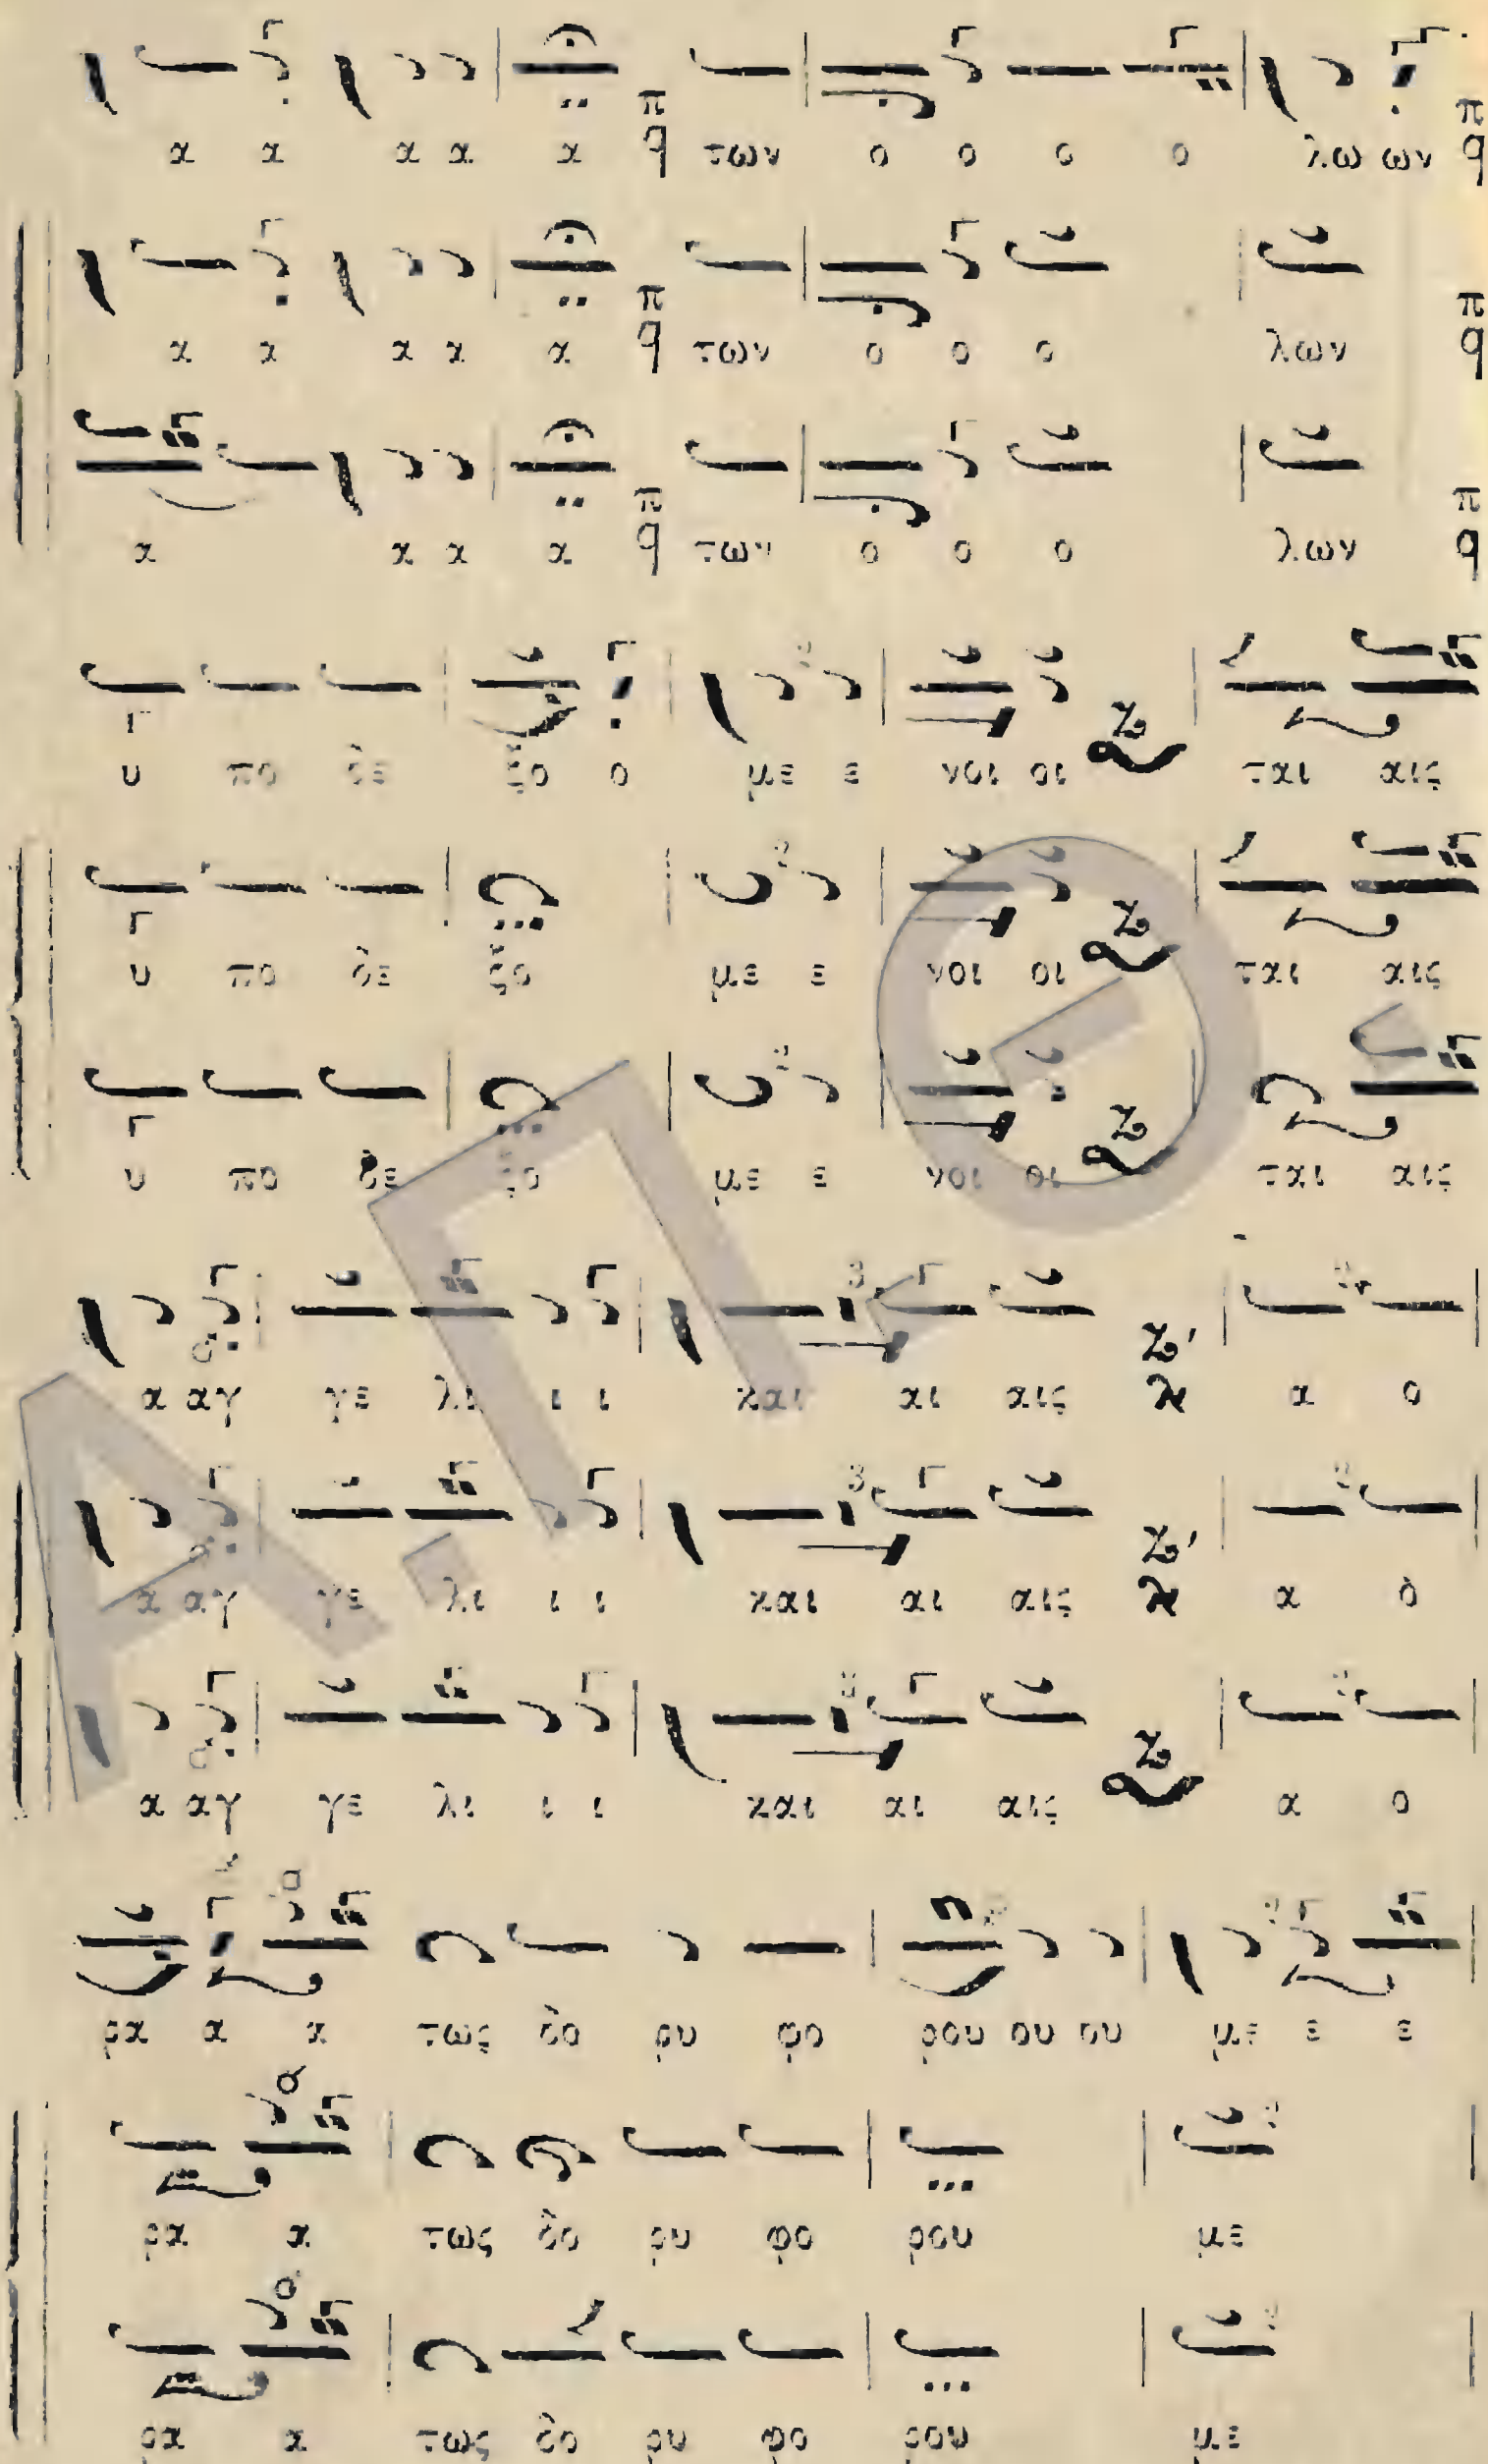 α α α α α π q των ο ο ο ο λω ων π q
α α α α α π q των ο ο ο λων π q
α α α α π q των ο ο ο λων π q
υ πο δε ξο ο με ε νοι οι Ζ ται αις
υ πο δε ξο με ε νοι οι Ζ ται αις
υ πο δε ξο με ε νοι οι Ζ ται αις
α αγ γε λι ι ι και αι αις Ζ' α ο
α αγ γε λι ι ι και αι αις Ζ' α ο
α αγ γε λι ι ι και αι αις Ζ α ο
ρα α α τως δο ρυ φο ρου ου ου με ε ε
ρα α τως δο ρυ φο ρου με
ρα α τως δο ρυ φο ρου με
Α.Π.Θ